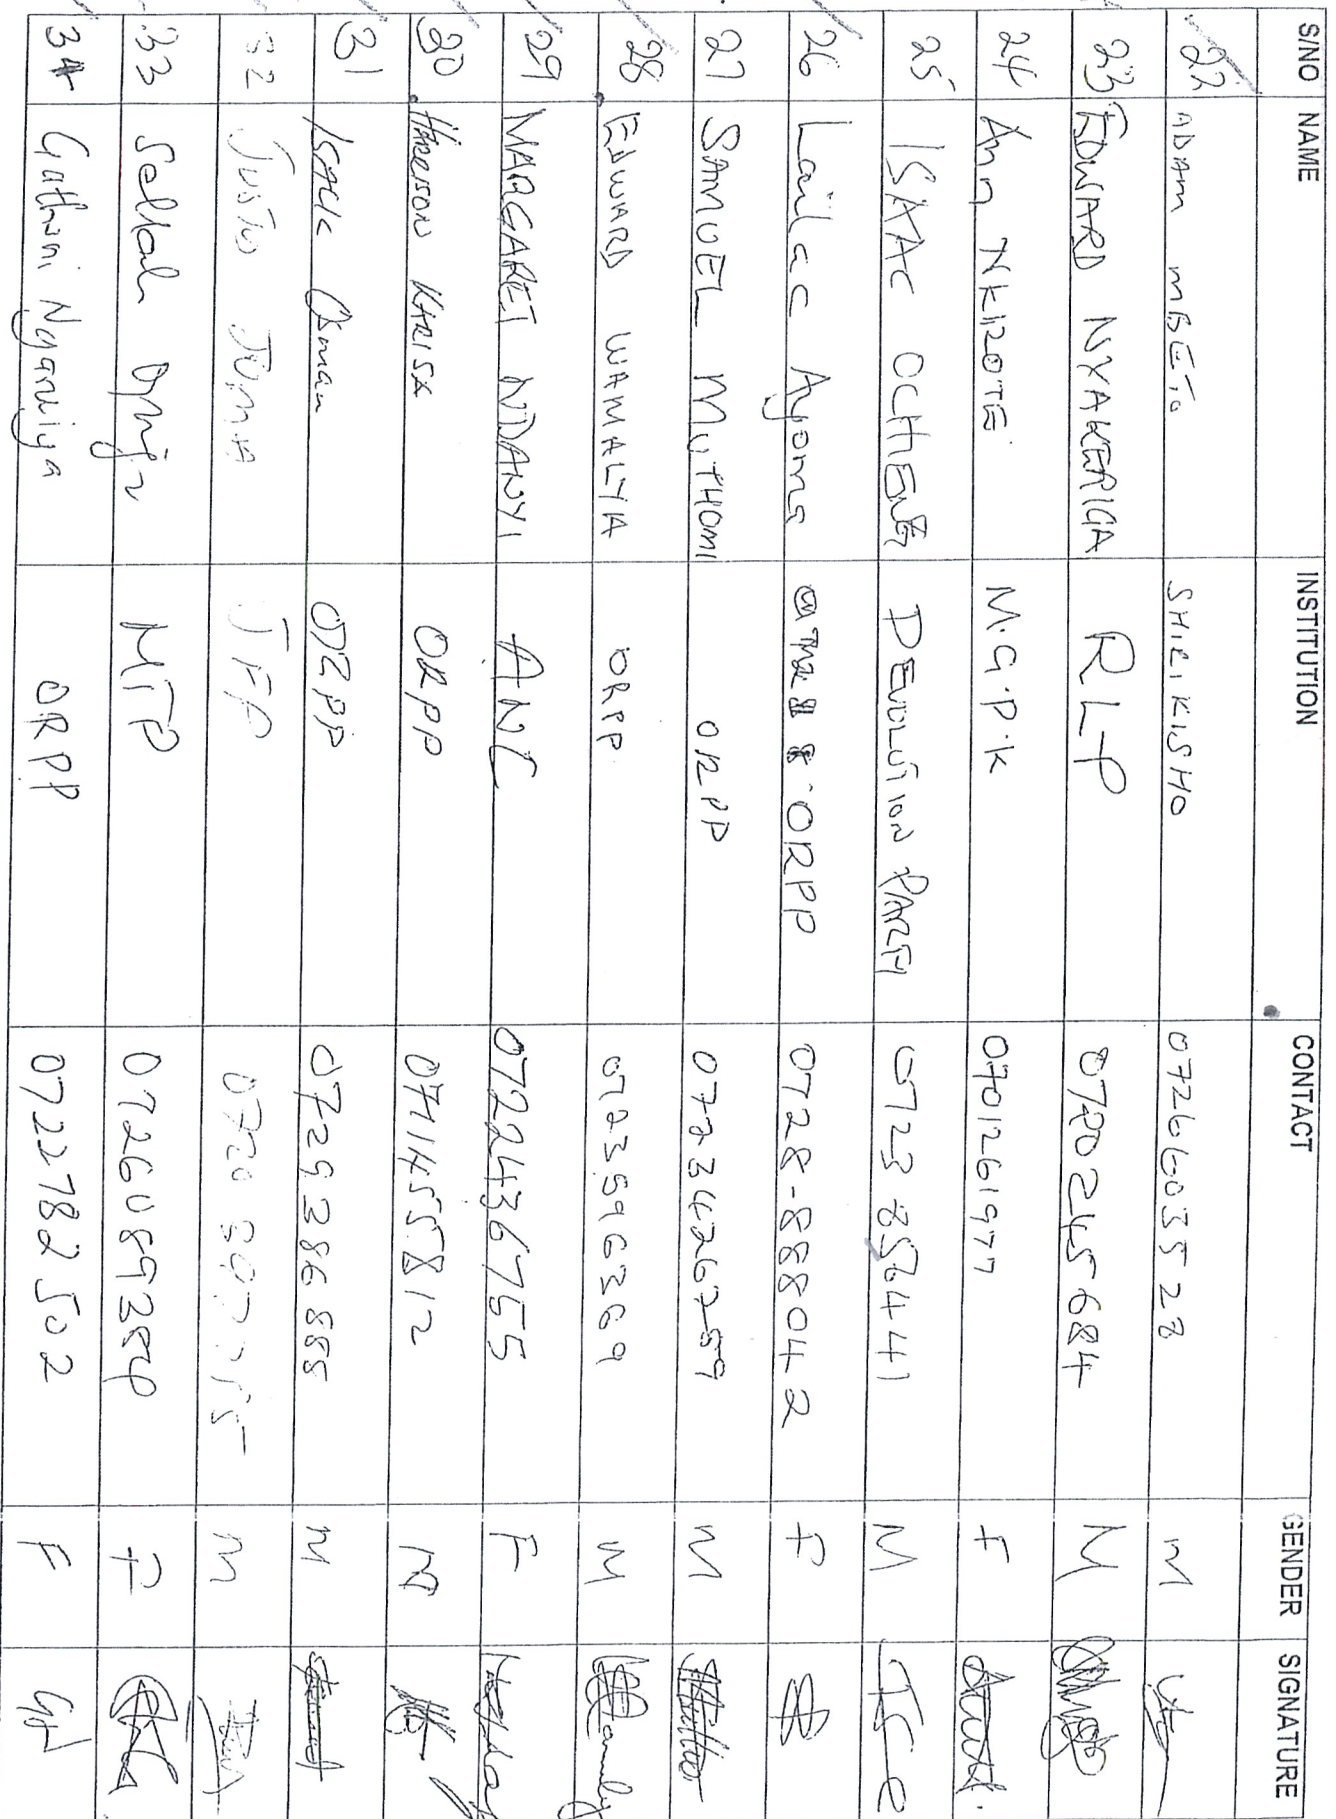 S/NO NAME INSTITUTION CONTACT GENDER SIGNATURE
22 ADAM MBETO SHIRIKISHO 0726603528 M
23 EDWARD NYAKERIGA RLP 0720245684 M
24 Ann NKIROTE M.G.P.K 0701261977 F
25 ISAAC OCHIENG DEVOLUTION PARTY 0723 856441 M
26 Lailac Ayoma ORPP 0728-888042 F
27 SAMUEL MUTHOMI ORPP 0723426759 M
28 EDWARD WAMALYA ORPP 0723596369 M
29 MARGARET NDANYI ANC 0722436755 F
30 HARRISON KARISA ORPP 0711455812 M
31 ISACK Osman ORPP 0729386888 M
32 JUSTUS JUMA JFP 0720 M
33 Sellah MTP F
34 Gathoni Ngaruiya ORPP 0722782502 F